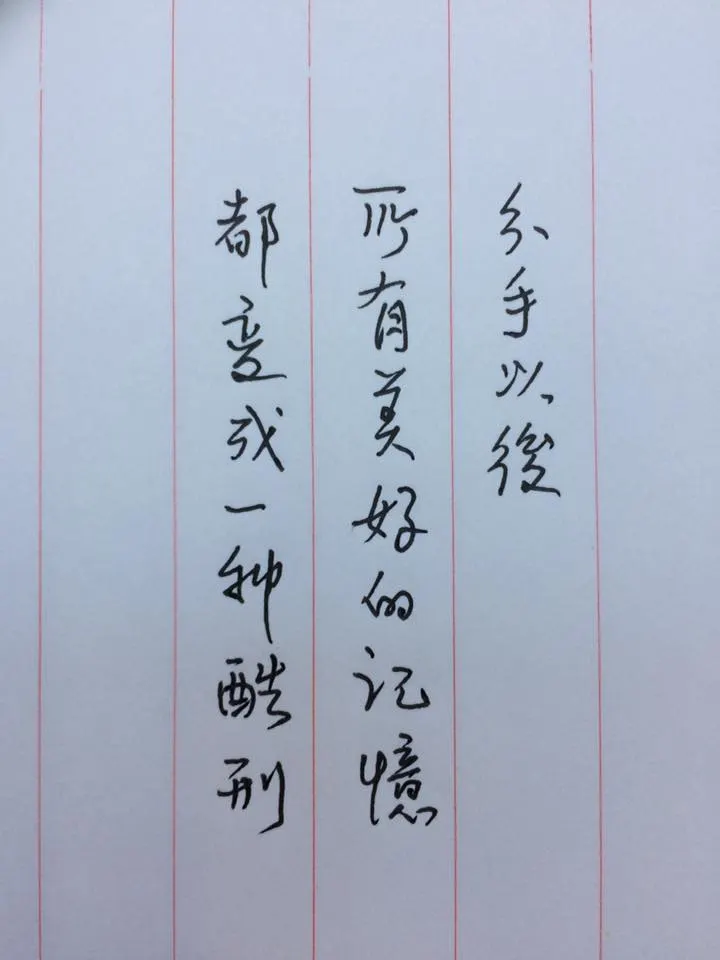 分手以後
所有美好的记憶
都变成一种酷刑